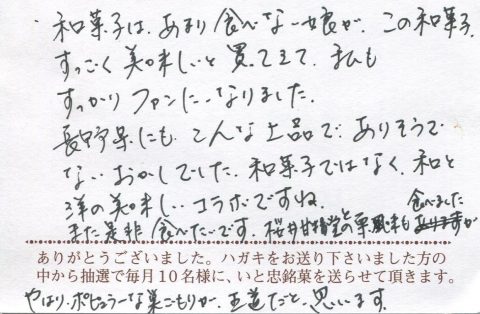 和菓子は、あまり食べない娘が、この和菓子
すっごく美味しいと買ってきて、私も
すっかりファンになりました。
長野県にも、こんな上品で、ありそうで
ないおかしでした。和菓子ではなく、和と
洋の美味しいコラボですね。
また是非食べたいです。桜井甘精堂と栗風来も 食べましたが
ありがとうございました。ハガキをお送り下さいました方の
中から抽選で毎月10名様に、いと忠銘菓を送らせて頂きます。
やはり、ポピュラーな巣ごもりが、王道だと、思います。